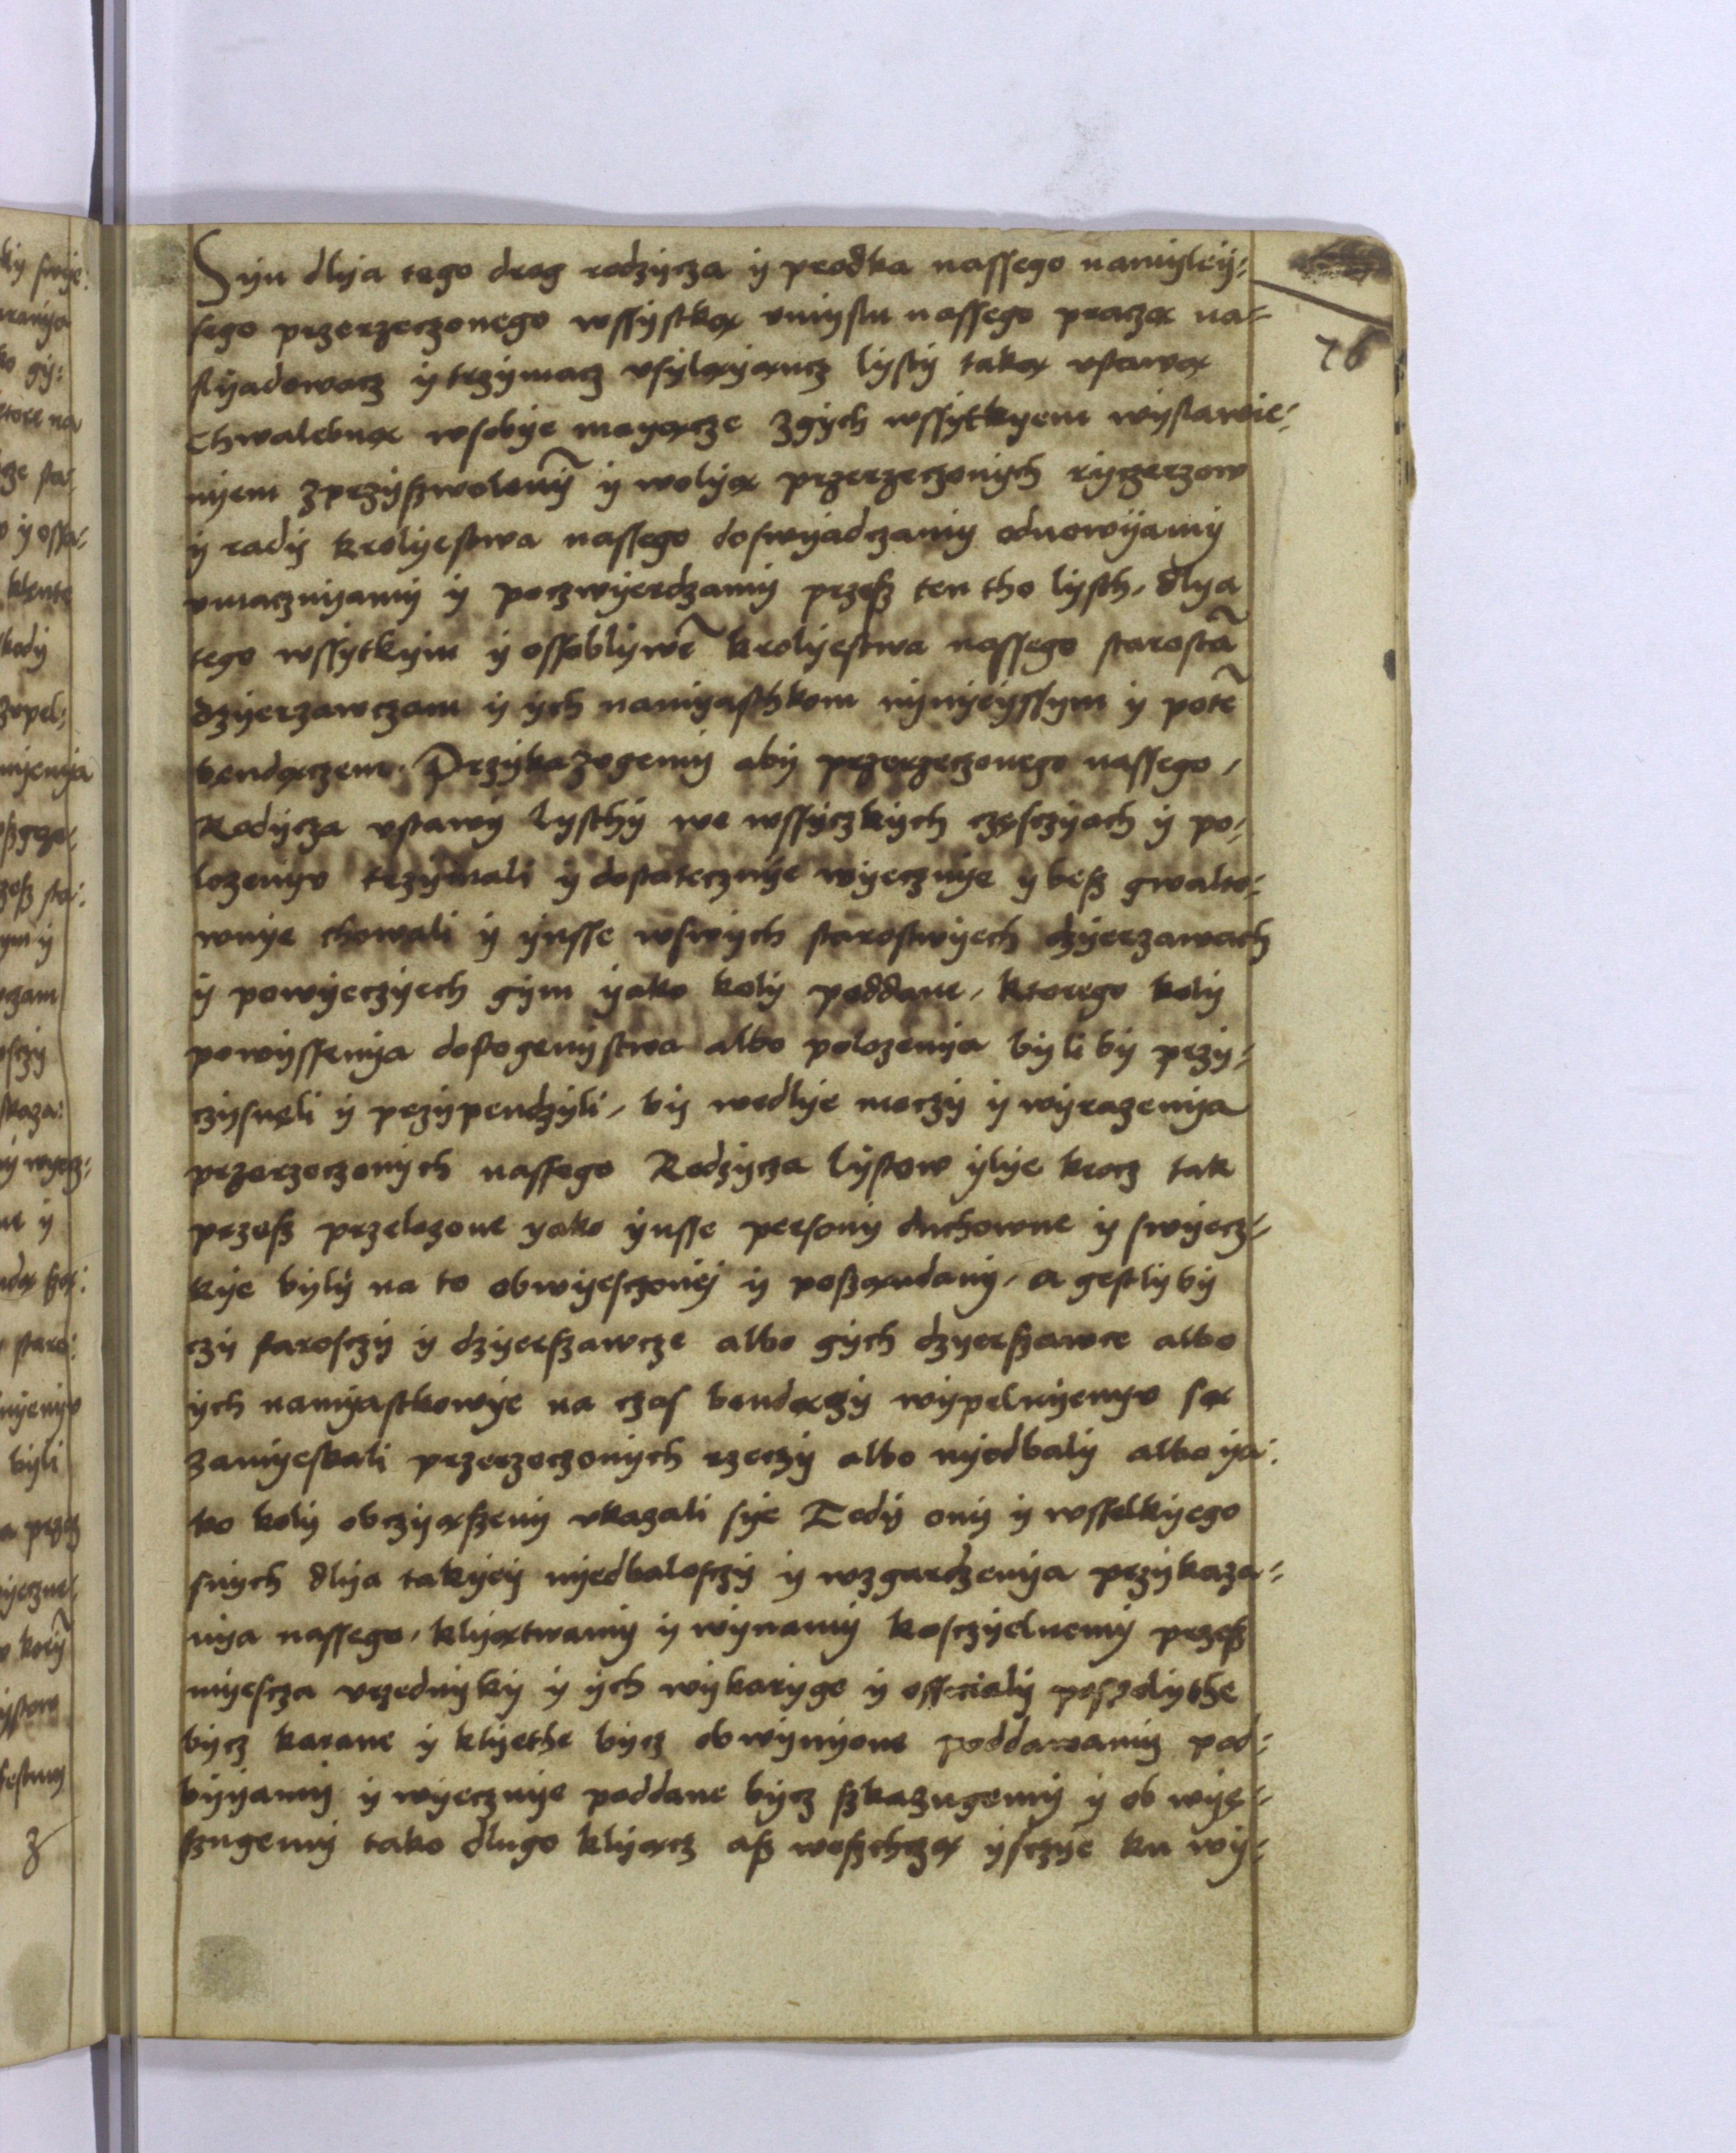 Syn dlya tego drog rodzycza y prodka nassego namyley⸗
sego przerzeczonego wssystkα vmyslu nassego praczα na⸗
slyadowacz y trzymacz vsylαyαncz lysty takα vstawα
Chwalebnα wsobye mayαcze zgych wssytkyem wyslawie⸗
nyem zprzyszwolenỹ y wolyα przerzeczonych ryczerzow
y rady krolyestwa nassego doswyadczamy odnowyamy
vmacznyamy y poczwyerdzamy przesz ten tho lysth, dlya
tego wssytkym y ossoblywẽ krolyestwa nassego starostã
dzyerzawczam y ych namyasthkom nynyeyssym y potẽ
bendαczem. Przykazogemy aby przerzeczonego nassego,
Rodycza vstawy Lysthy we wssyczkych czesczyach y po⸗
lozenyv trzymali y dostatecznye wyecznye y besz gwalto⸗
wnye chowali y ynsse wswych starostwyech dzyerzawach
y powyeczyech gym yako koly poddane, ktorego koly
powyssenya dostogenystwa albo polozenya byli by przy⸗
czysneli y przypendzyli, by wedlye moczy y wyrazenya
przerzeczonych nassego Rodzycza lystow ylye krocz tak
przesz przelozone yako ynsse persony duchowne y swyecz⸗
kye byly na to obwyesczony y poszαndany, a gestly by
czy starosczy y dzyerszawcze albo gych dzyerszawce albo
ych namyastkowye na czas bendαczy wypelnyenyv sα
zamyeskali przerzeczonych rzeczy albo nyedbaly albo ya⸗
ko koly obczyαszeny vkazali sye Tedy ony y wsselkyego
snych dlya takyey nyedbalosczy y wzgardzenya przykaza⸗
nya nassego, klyαtwamy y wynamy kosczyelnemy przesz
myescza vrzednyky y ych wykaryge y officialy pospolythe
bycz karane y klyethe bycz obwynyone poddawamy pod⸗
byyamy y wyecznye poddane bycz szkazugemy y ob wye⸗
szugemy tako dlugo klyαcz asz weszchczα ysczye ku wy⸗
76